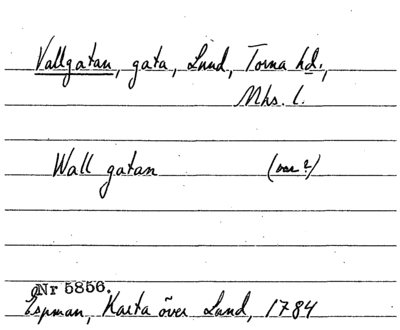 Vallgatan, gata, Lund, Torna hd.,
Mhs. l.
Wall gatan (var?)
Nr 5856.
Espman, Karta över Lund, 1784